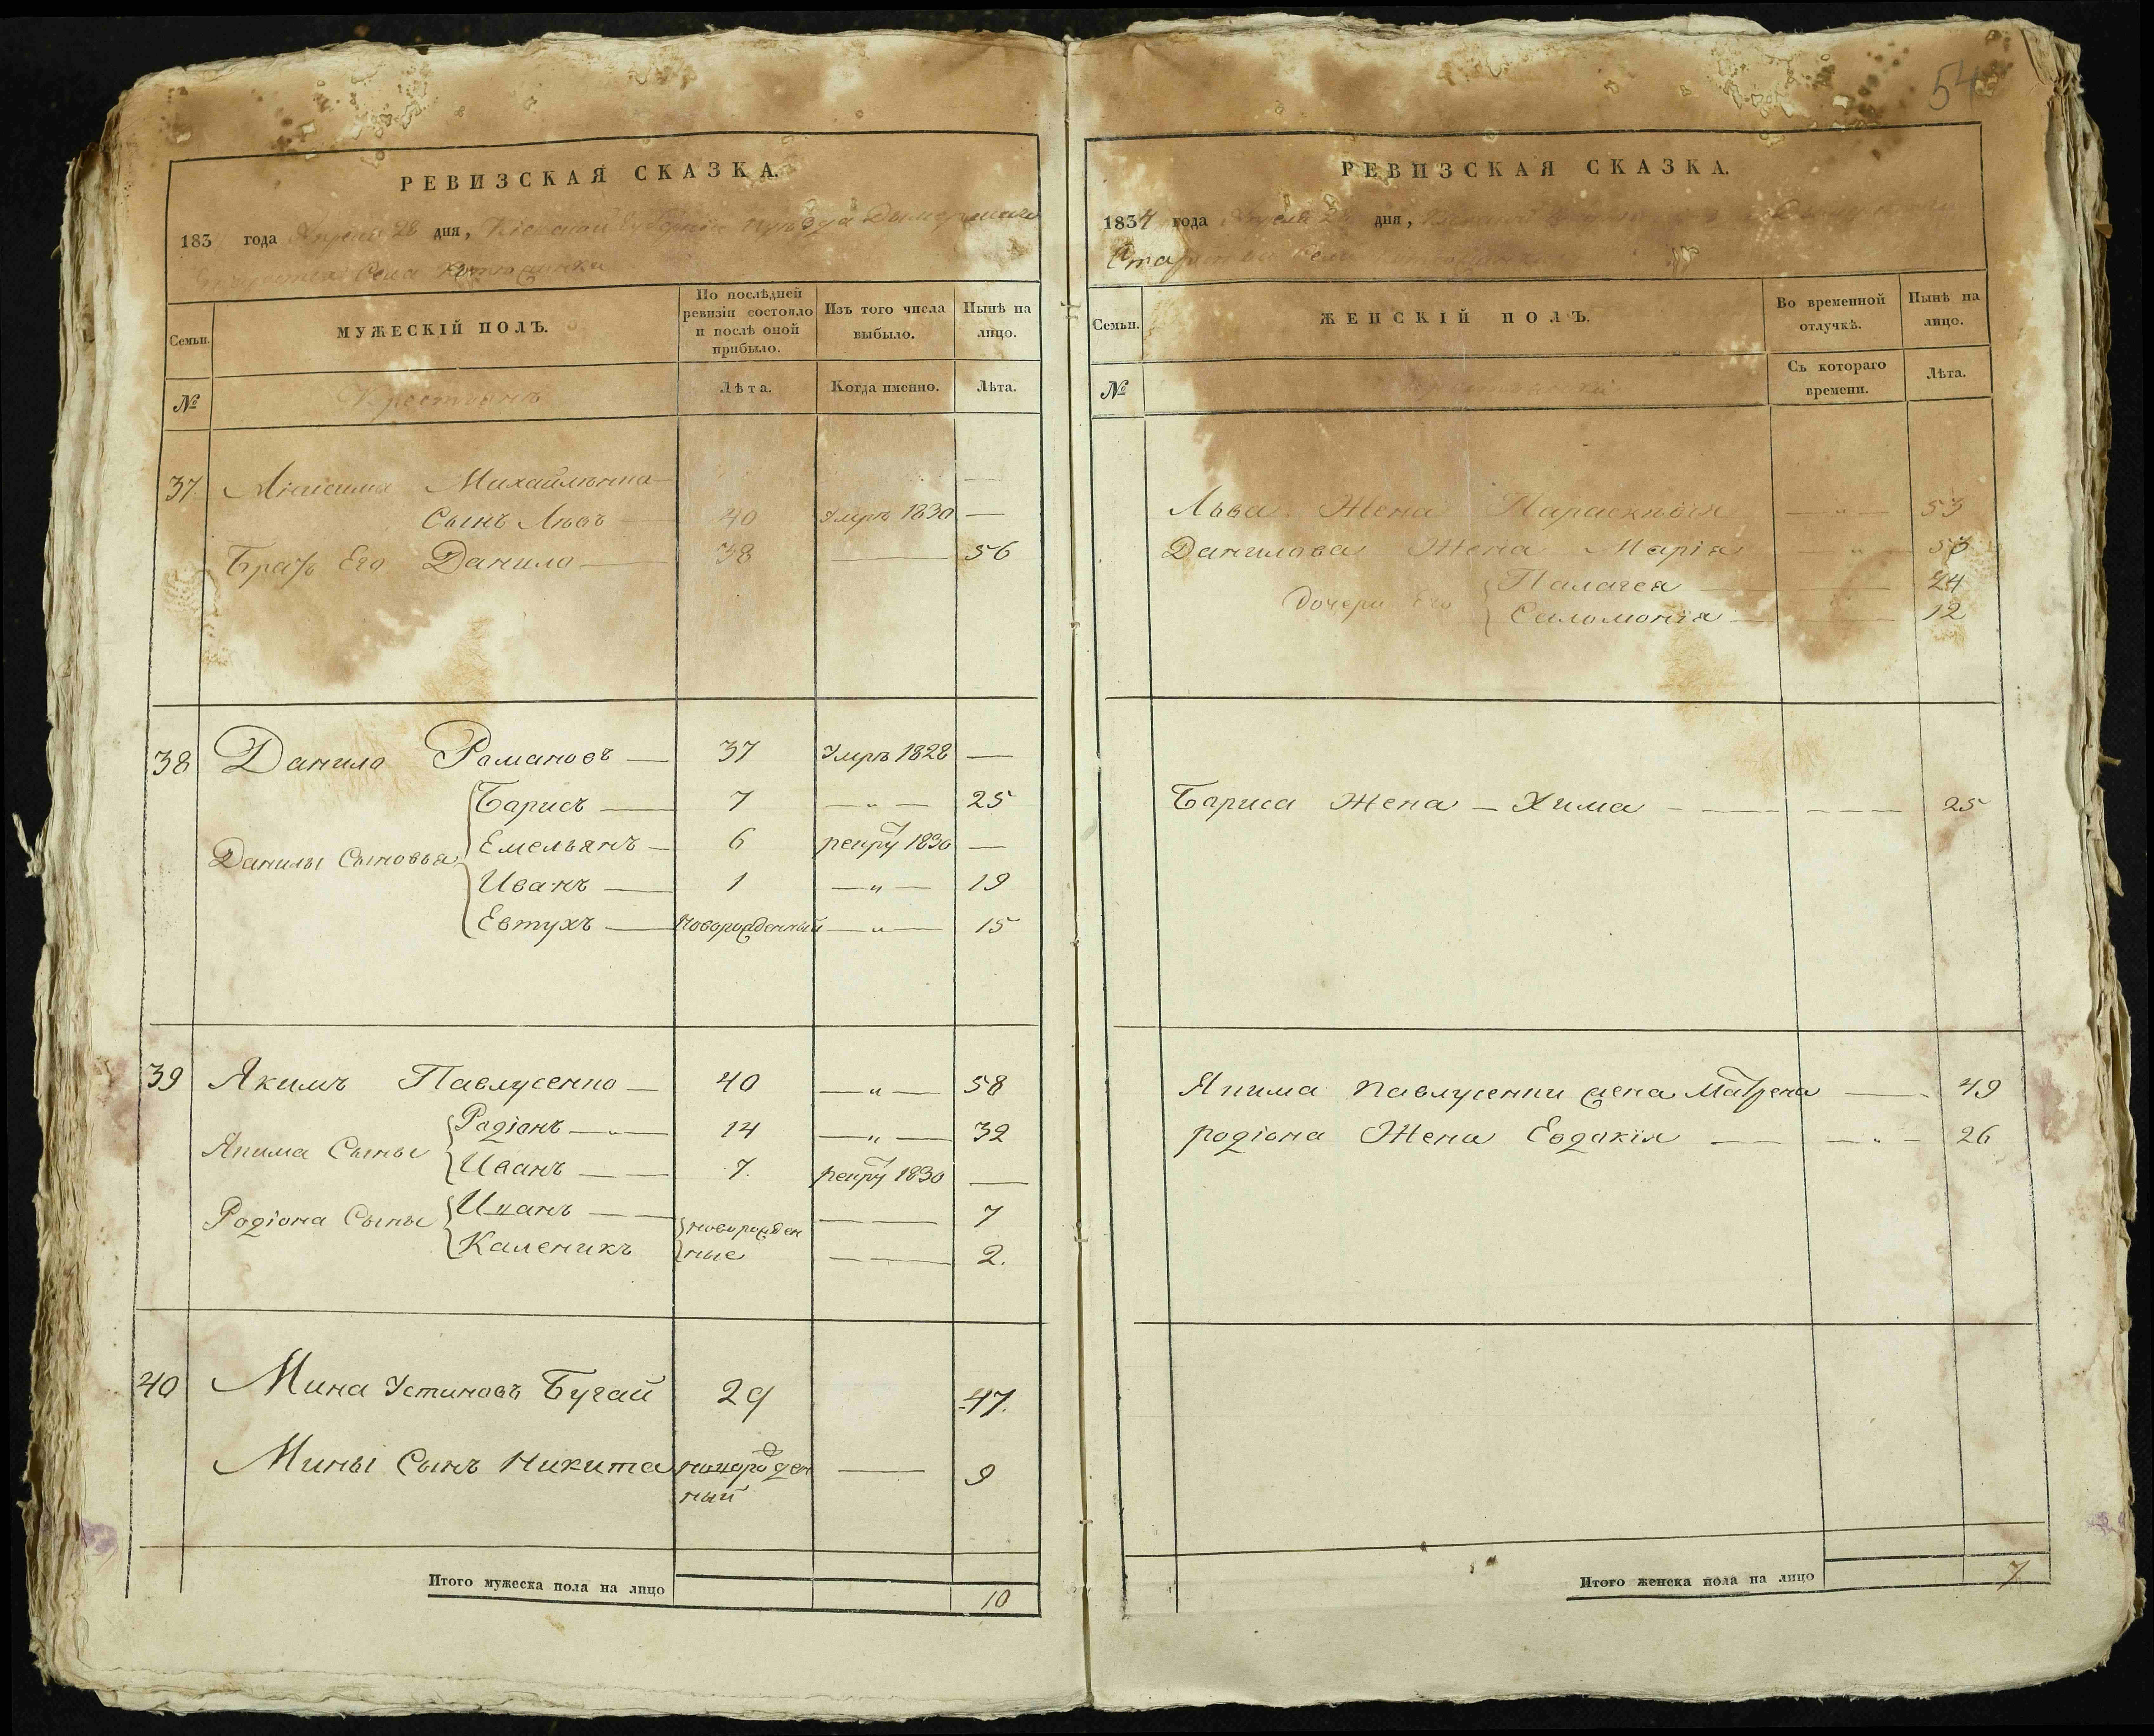 54
РЕВИЗСКАЯ СКАЗКА.
183 года Апреля 28 дня, Кіевской Губерніи уѣзда Дымерскаго
Села
Семьи.
МУЖЕСКІЙ ПОЛЪ.
По послѣдней ревизіи состояло и послѣ оной прибыло.
Изъ того числа выбыло.
Нынѣ на лицо.
№
Крестьянъ
Лѣта.
Когда именно.
Лѣта.
37 Михайленка —
Сынъ Левъ — 40 Умръ 1830 —
Братъ Его Данило — 38 — 56
38 Данило Романовъ — 37 Умръ 1828 —
Данилы Сыновья
Барисъ — 7 — " — 25
Емельянъ — 6 рекру 1830 —
Иванъ — 1 — " — 19
Евтухъ — Новорожденный — " — 15
39 Якимъ Павлусенко — 40 — " — 58
Якима Сыны
Радіонъ — " — 14 — " — 32
Иванъ — 7. рекру 1830 —
Родіона Сыны
Иванъ — новорожден — 7
Каленикъ ные — 2.
40 Мина Устиновъ Бугай 29 47.
Мины Сынъ Никита новорожден — 9
ный
Итого мужеска пола на лицо 10
РЕВИЗСКАЯ СКАЗКА.
1834 года Апреля дня,
Староства Села
Семьи.
ЖЕНСКІЙ ПОЛЪ.
Во временной отлучкѣ.
Нынѣ на лицо.
№
Съ котораго времени.
Лѣта.
Льва Жена Параскевія — " — 53
Данилова Жена Марія — " — 53
Дочери Его
Палагея — 24
Саломонія — 12
Бариса Жена — Хима — 25
Якима Павлусенки жена Матрена — 49
родіона Жена Евдокія — " — 26
Итого женска пола на лицо 7